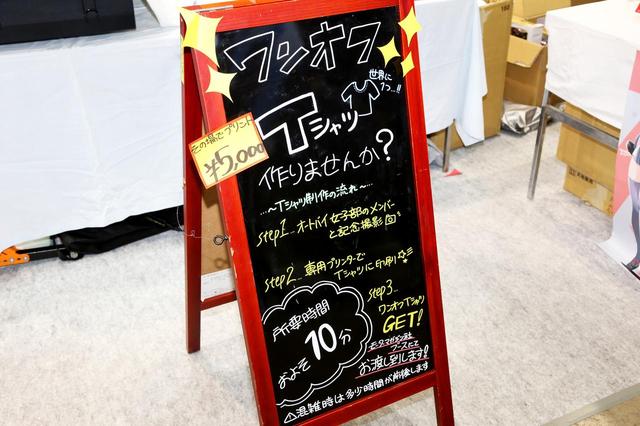 ワンオフ
世界に
1つ…!!
Tシャツ
その場でプリント
¥5,000
作りませんか?
…〜Tシャツ制作の流れ〜…
step1… オートバイ女子部のメンバー
と記念撮影
step2… 専用プリンターで
Tシャツに印刷
step3…
ワンオフTシャツ
GET!
所要時間
およそ10分
モーターマガジン社
ブースにて
お渡し致します!
⚠混雑時は多少時間が前後します